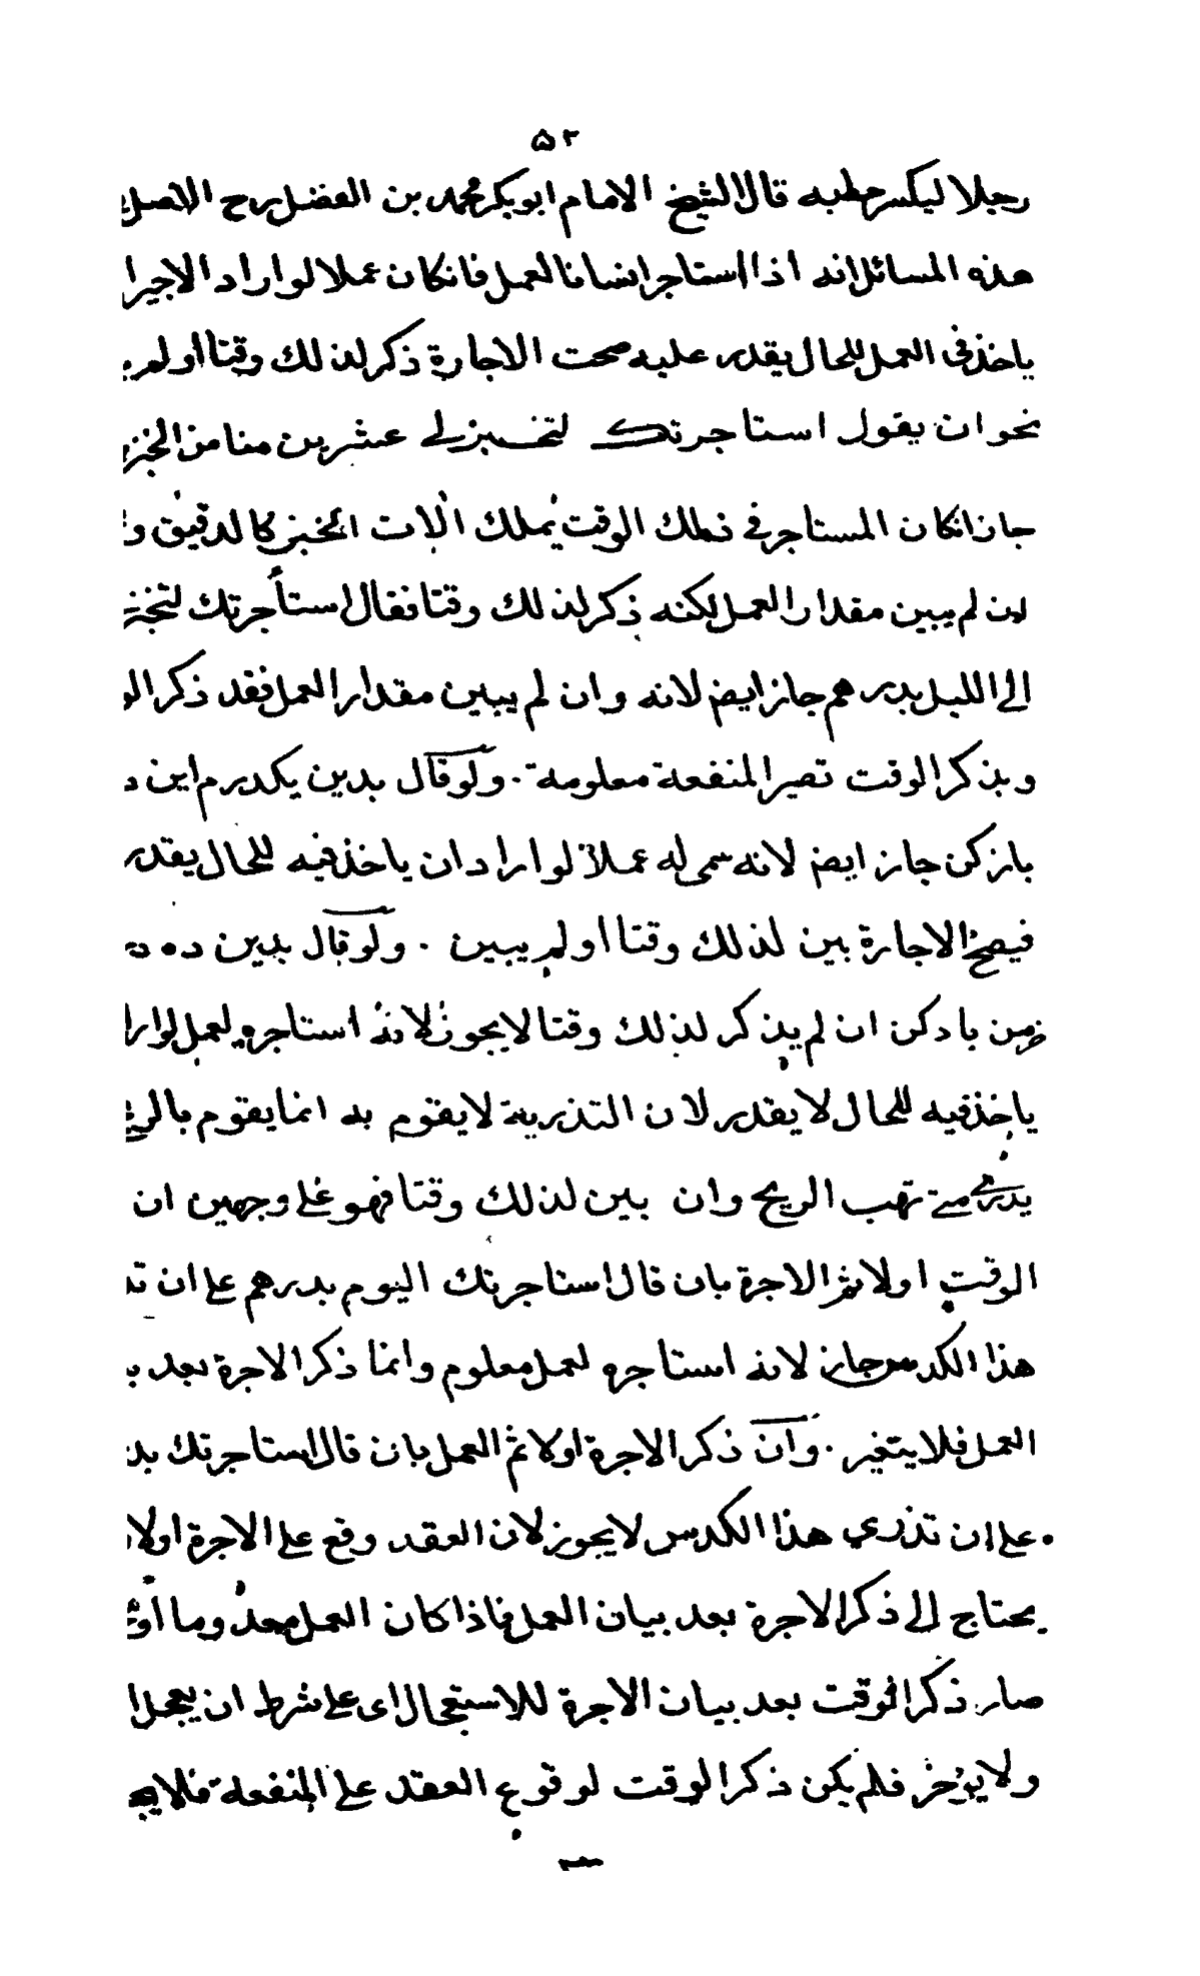 ٥٢
رجلا ليكسر حطبه قال الشيخ الامام ابو بكر محمد بن الفضل رح الاصل
هذه المسائل انه اذا استاجر انسانا لعمل فان كان عملا لو اراد الاجير ا
ياخذ في العمل للحال يقدر عليه صحت الاجارة ذكر لذلك وقتا او لم
نحو ان يقول استاجرتك لتخبز لي عشرين منا من الخبز
جاز ان كان المستاجر في ذلك الوقت يملك آلات الخبز كالدقيق و
لم يبين مقدار العمل لكنه ذكر لذلك وقتا فقال استأجرتك لتخبز
الى الليل بدرهم جاز ايضا لانه وان لم يبين مقدار العمل فقد ذكر الو
وبذكر الوقت تصير المنفعة معلومة . ولو قال بدين يكدرم اين د
باز كن جاز ايضا لانه سمى له عملا لو اراد ان ياخذ فيه للحال يقدر
فيصح الاجارة بين لذلك وقتا او لم يبين . ولو قال بدين ده
باد كن ان لم يذكر لذلك وقتا لا يجوز لانه استاجره لعمل لو ارا
ياخذ فيه للحال لا يقدر لان التذرية لا يقوم به انما يقوم بالريح
متى تهب الريح وان بين لذلك وقتا فهو على وجهين ان
الوقت اولا ثم الاجرة بان قال استاجرتك اليوم بدرهم على ان تذ
هذا الكدس جاز لانه استاجره لعمل معلوم وانما ذكر الاجرة بعد ب
العمل فلا يتغير . وان ذكر الاجرة اولا ثم العمل بان قال استاجرتك بد
على ان تذري هذا الكدس لا يجوز لان العقد وقع على الاجرة اولا
يحتاج الى ذكر الاجرة بعد بيان العمل فاذا كان العمل معدوما او
صار ذكر الوقت بعد بيان الاجرة للاستعجال اى على شرط ان يعجل ا
ولا يؤخر فلم يكن ذكر الوقت لوقوع العقد على المنفعة فلا يج